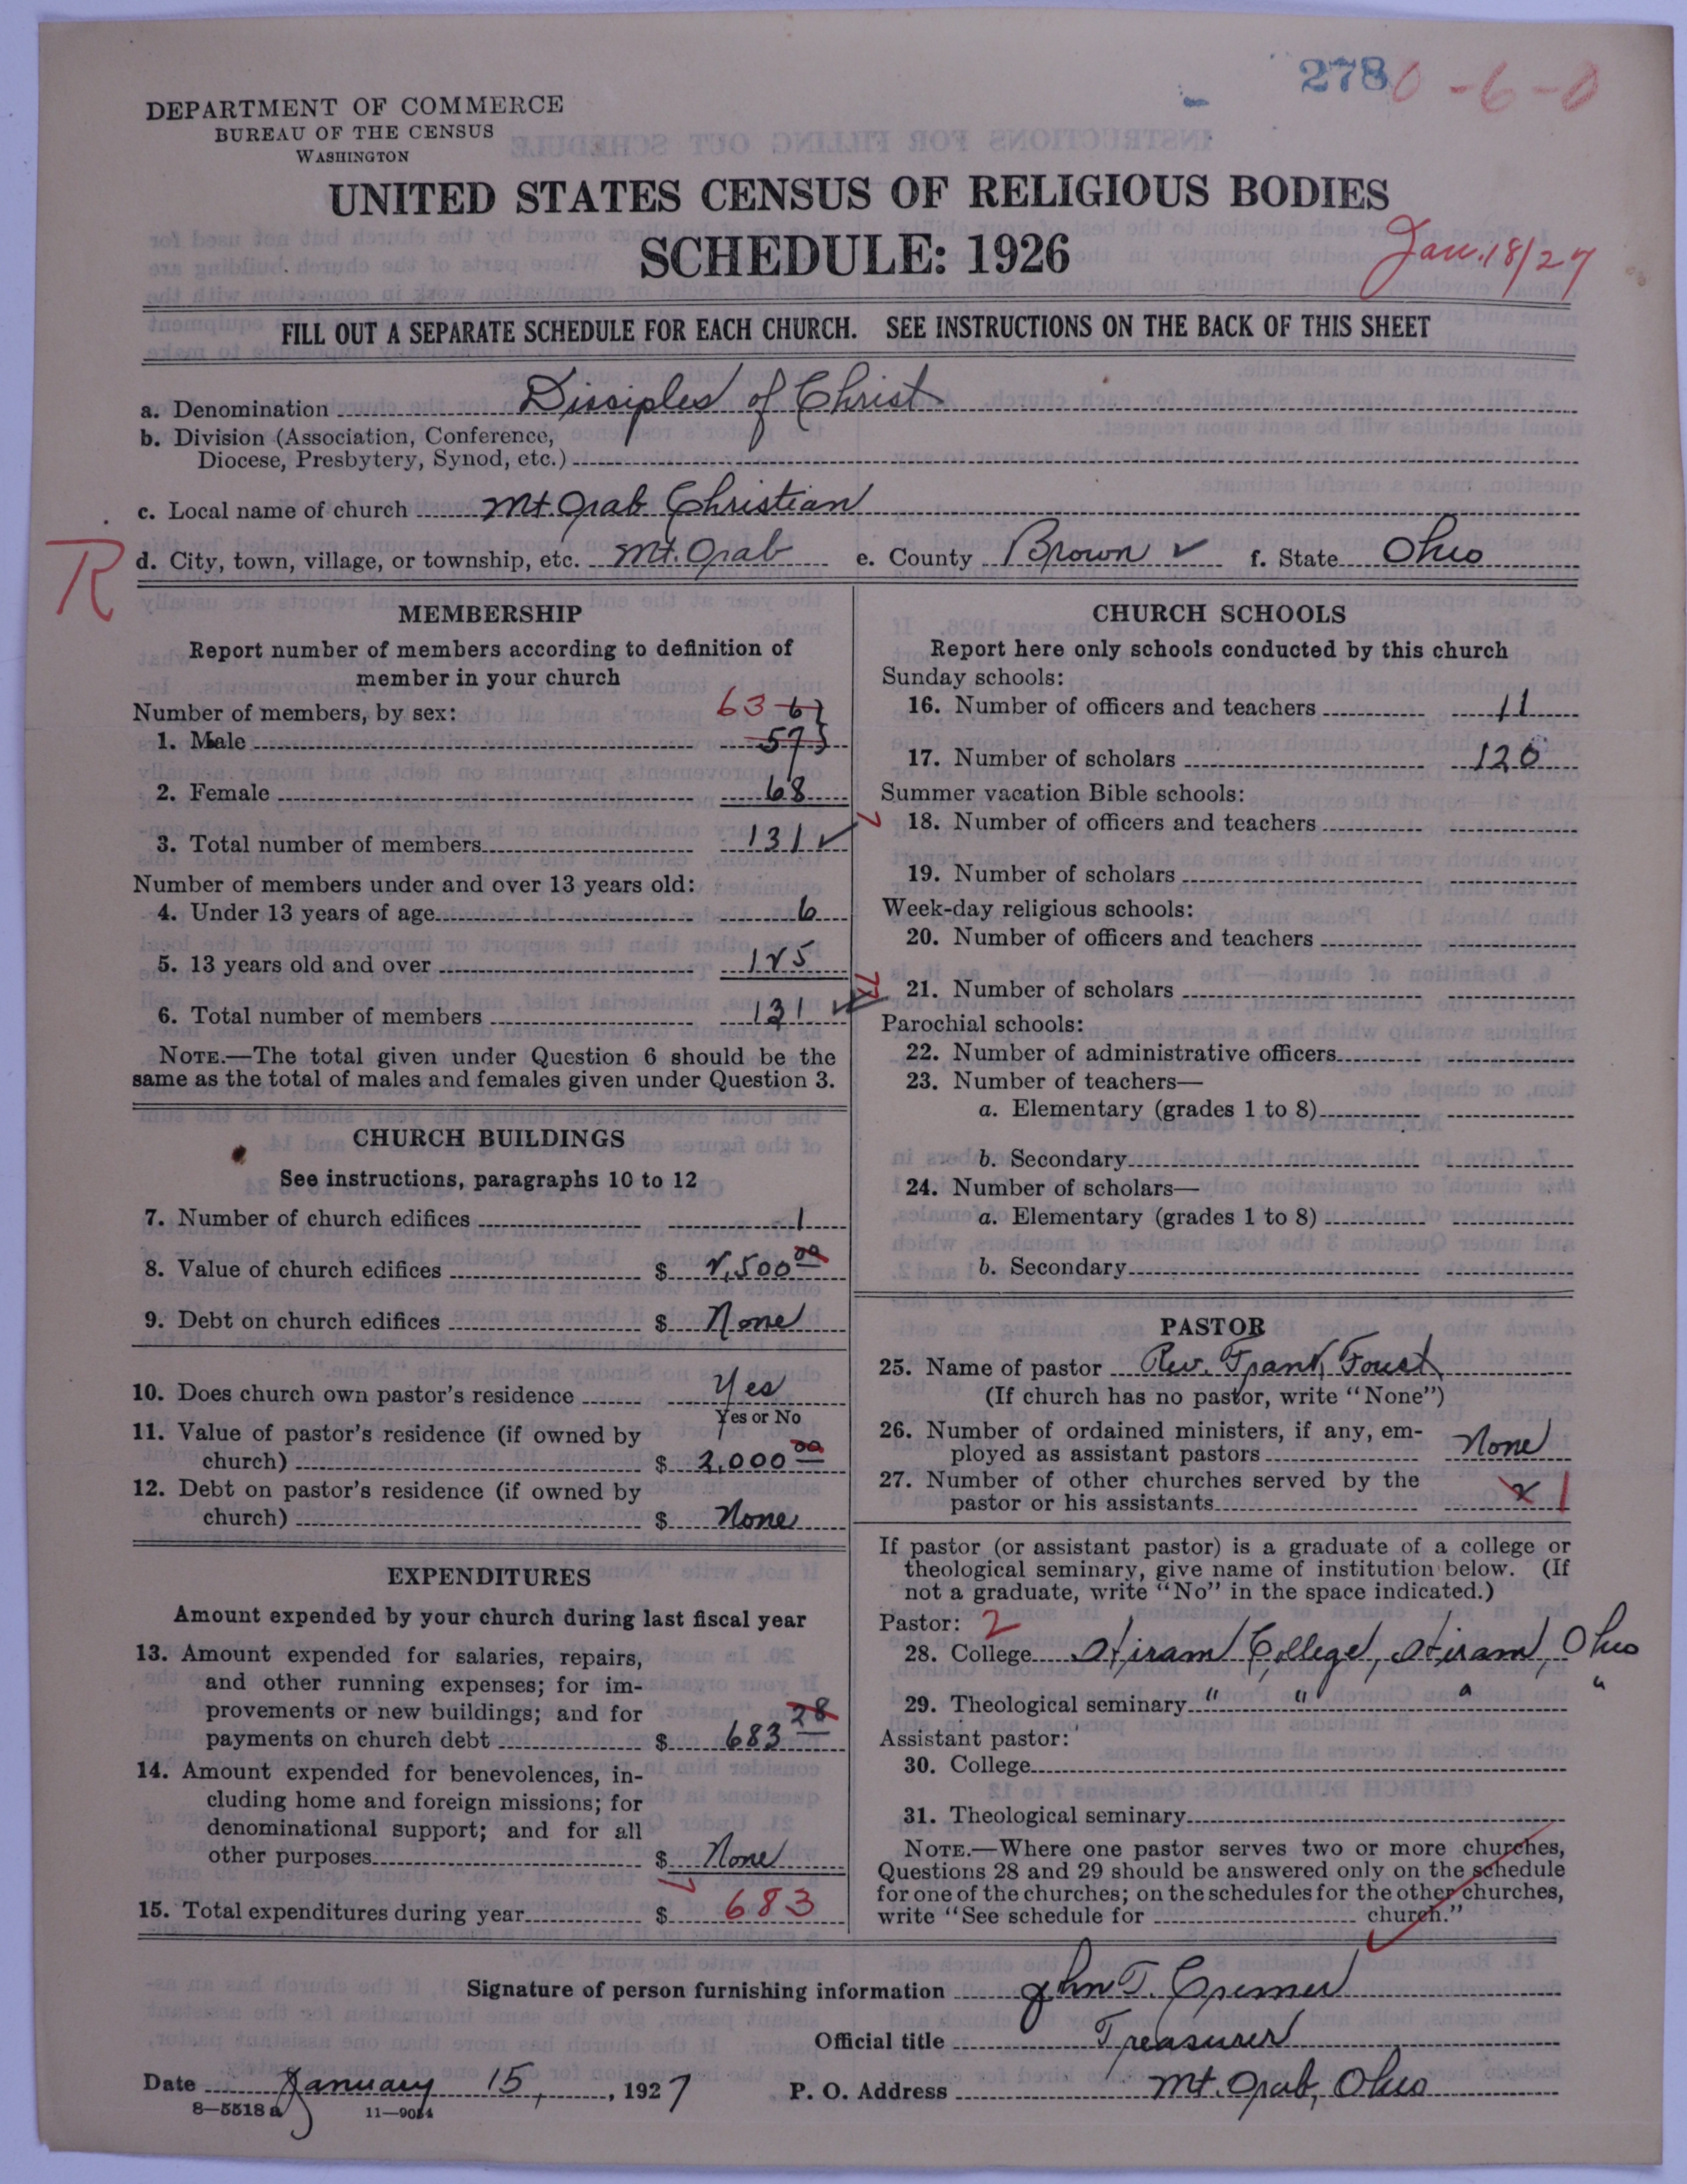 2780-6-0
DEPARTMENT OF COMMERCE
BUREAU OF THE CENSUS
WASHINGTON
UNITED STATES CENSUS OF RELIGIOUS BODIES
SCHEDULE: 1926
Jan. 18/27
FILL OUT A SEPARATE SCHEDULE FOR EACH CHURCH. SEE INSTRUCTIONS ON THE BACK OF THIS SHEET
a. Denomination Disciples of Christ
b. Division (Association, Conference,
Diocese, Presbytery, Synod, etc.)
c. Local name of church Mt Orab Christian
R
d. City, town, village, or township, etc. Mt. Orab e. County Brown ✓ f. State Ohio
MEMBERSHIP
Report number of members according to definition of
member in your church
Number of members, by sex: 63 6
1. Male 57
2. Female 68
3. Total number of members 131 ✓
Number of members under and over 13 years old:
4. Under 13 years of age 6
5. 13 years old and over 125
6. Total number of members 131 ✓
NOTE.—The total given under Question 6 should be the
same as the total of males and females given under Question 3.
CHURCH BUILDINGS
See instructions, paragraphs 10 to 12
7. Number of church edifices 1
8. Value of church edifices $ 2,500 00
9. Debt on church edifices $ None
10. Does church own pastor's residence Yes
Yes or No
11. Value of pastor's residence (if owned by
church) $ 2,000 00
12. Debt on pastor's residence (if owned by
church) $ None
EXPENDITURES
Amount expended by your church during last fiscal year
13. Amount expended for salaries, repairs,
and other running expenses; for im-
provements or new buildings; and for
payments on church debt $ 683 28
14. Amount expended for benevolences, in-
cluding home and foreign missions; for
denominational support; and for all
other purposes $ None
15. Total expenditures during year $ 683
CHURCH SCHOOLS
Report here only schools conducted by this church
Sunday schools:
16. Number of officers and teachers 11
17. Number of scholars 120
Summer vacation Bible schools:
18. Number of officers and teachers
19. Number of scholars
Week-day religious schools:
20. Number of officers and teachers
21. Number of scholars
Parochial schools:
22. Number of administrative officers
23. Number of teachers—
a. Elementary (grades 1 to 8)
b. Secondary
24. Number of scholars—
a. Elementary (grades 1 to 8)
b. Secondary
PASTOR
25. Name of pastor Rev. Frank Foust
(If church has no pastor, write "None")
26. Number of ordained ministers, if any, em-
ployed as assistant pastors None
27. Number of other churches served by the
pastor or his assistants 2 1
If pastor (or assistant pastor) is a graduate of a college or
theological seminary, give name of institution below. (If
not a graduate, write "No" in the space indicated.)
Pastor: 2
28. College Hiram College, Hiram, Ohio
29. Theological seminary " " " "
Assistant pastor:
30. College
31. Theological seminary
NOTE.—Where one pastor serves two or more churches,
Questions 28 and 29 should be answered only on the schedule
for one of the churches; on the schedules for the other churches,
write "See schedule for church."
Signature of person furnishing information John T. Cremer
Official title Treasurer
Date January 15, 1927 P. O. Address Mt. Orab, Ohio
8—5518 a 11—9054